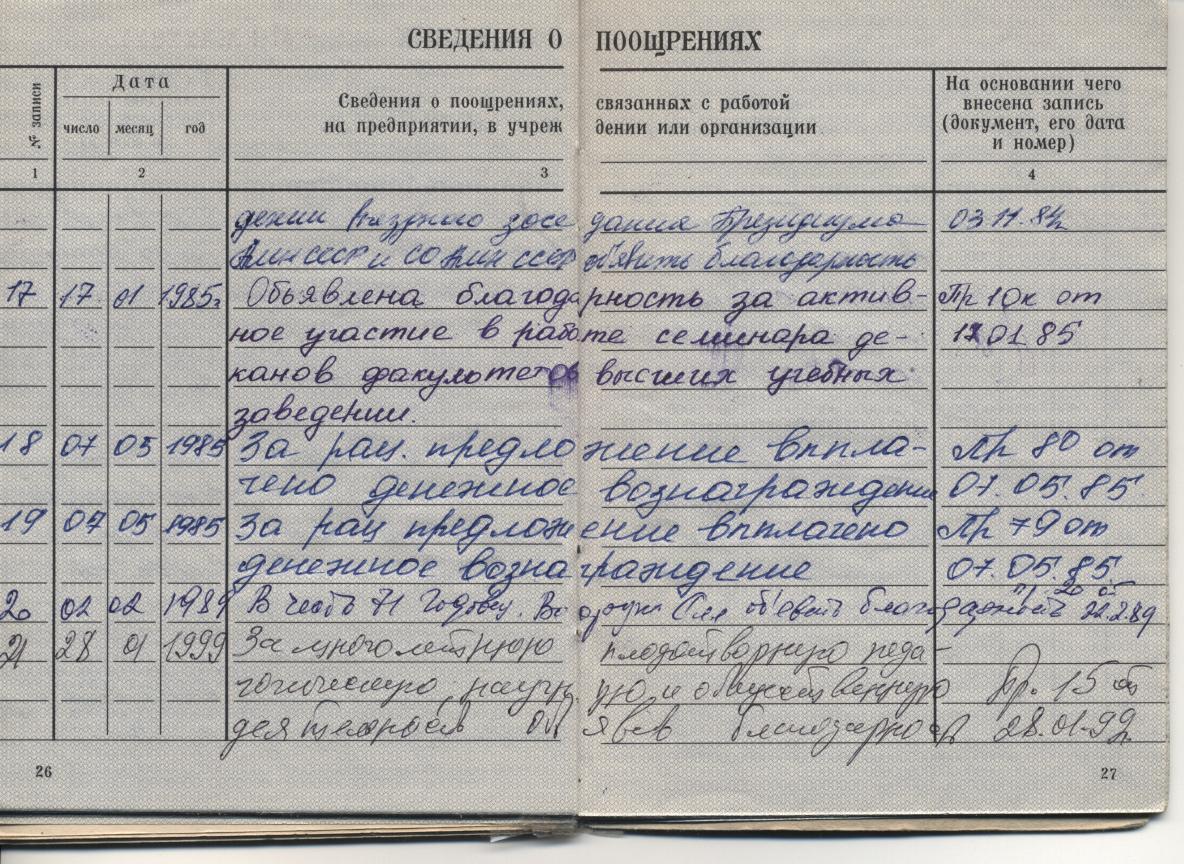 СВЕДЕНИЯ О ПООЩРЕНИЯХ
№ записи
Дата
число месяц год
Сведения о поощрениях, связанных с работой
на предприятии, в учреж дении или организации
На основании чего
внесена запись
(документ, его дата
и номер)
1 2 3 4
дении заседания Президиума 03.11.84
СССР и СССР объявить благодарность
17 17 01 1985г Объявлена благодарность за актив- Пр 10к от
ное участие в работе семинара де- 17.01 85
канов факультетов высших учебных
заведении.
18 07 05 1985 За рац. предложение выпла- Пр 80 от
чено денежное вознаграждение 07.05.85.
19 07 05 1985 За рац предложение выплачено Пр 79 от
денежное вознаграждение 07.05.85.
20 02 02 1989 В честь 71 годовщ. объявить благодарность 22.2.89
21 28 01 1999 За многолетнюю плодотворную педа-
гогическую, научную и общественную Пр. 15 от
деятельность объявл благодарность 28.01.99.
26
27